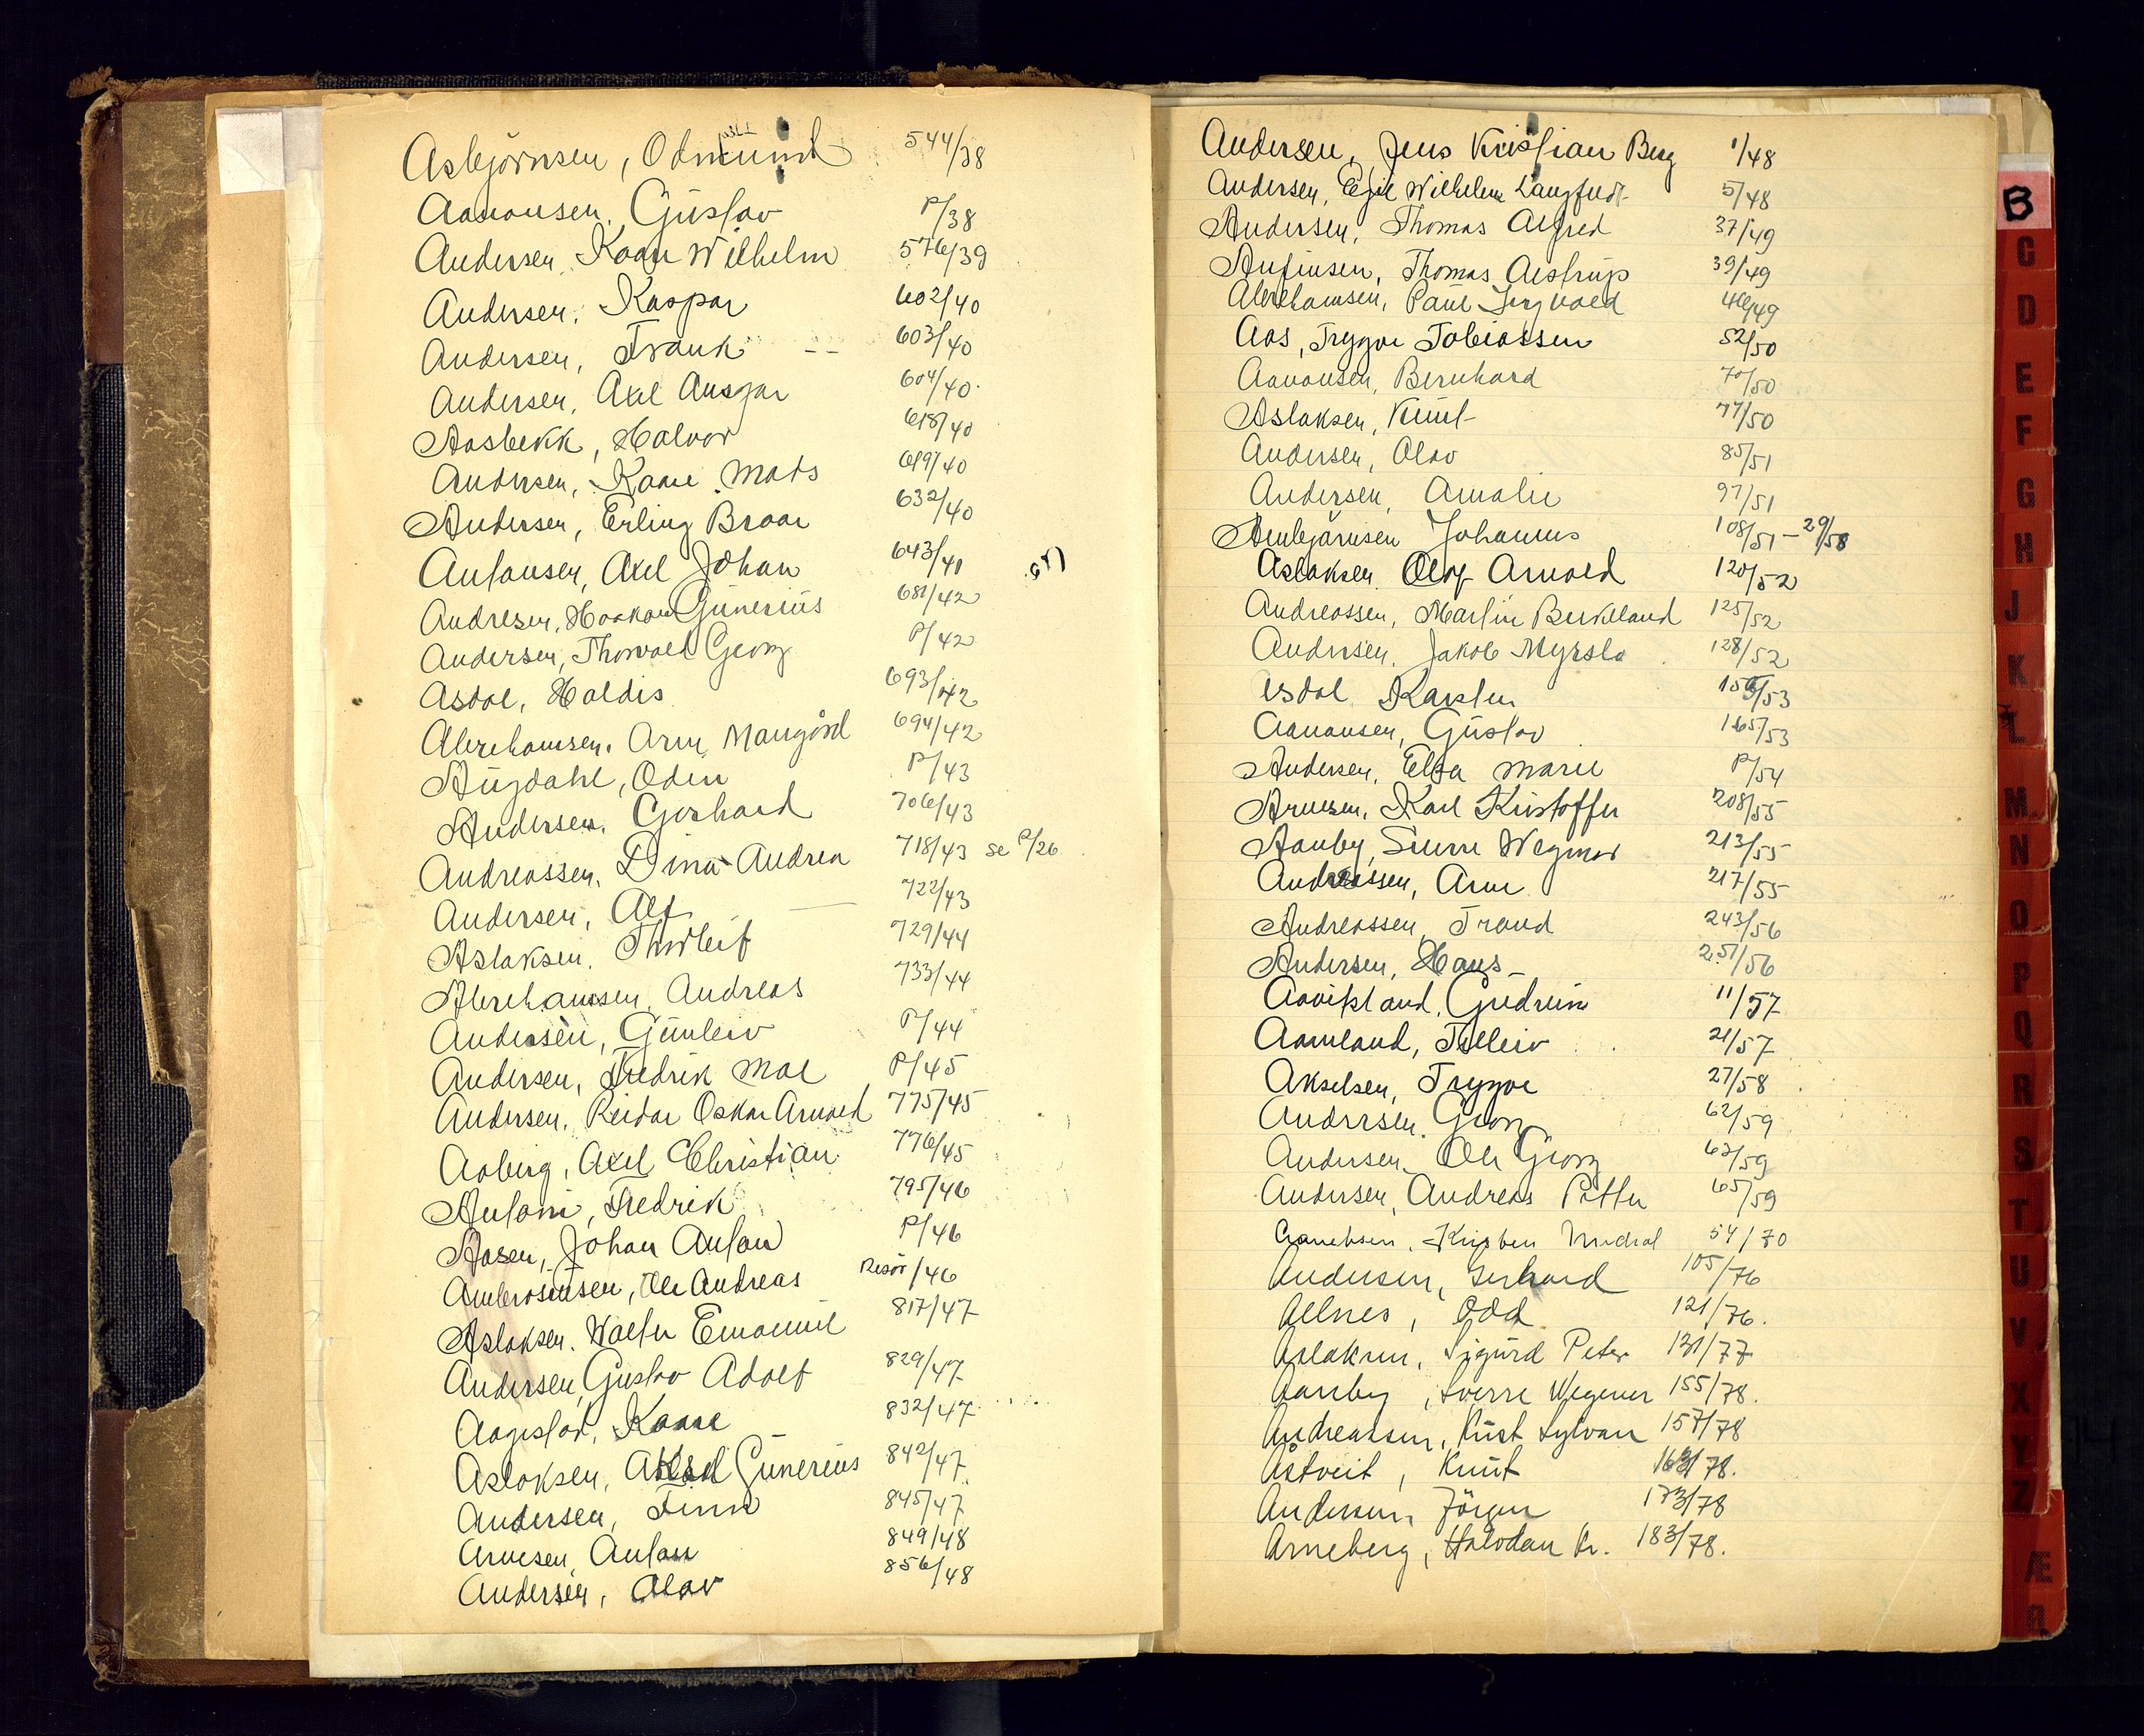 Asbjörnsen, Odmund 544/38
Aanonsen, Gustav P/38
Andersen, Kaare Wilhelm 576/39
Andersen, Kaspar 602/40
Andersen, Frank 603/40
Andersen, Axel Ansgar 604/40
Aasbekk, Halvor 618/40
Andersen, Kaare Mads 619/40
Andersen, Erling Braar 632/40
Antonsen, Axel Johan 643/41
Andresen, Haakon Gunerius 681/42
Andersen, Thorvald Georg P/42
Asdal, Haldis 693/42
Abrahamsen, Arne Mangård 694/42
Augdahl, Odin P/43
Andersen, Gerhard 706/43
Andreassen, Dina Andrea 718/43 se P/26
Andersen, Alf 722/43
Aslaksen, Thorleif 729/44
Abrahamsen, Andreas 733/44
Andersen, Gunleiv P/44
Andersen, Fredrik Moe P/45
Andersen, Reidar Oskar Arnold 775/45
Aaberg, Axel Christian 776/45
Antoni, Fredrik 795/46
Aasen, Johan Anton P/46
Ambrosiussen, Ole Andreas Risør/46
Aslaksen, Walter Emanuel 817/47
Andersen, Gustav Adolf 829/47
Aagestad, Kaare 832/47
Aslaksen, Aksel Gunerius 842/47
Andersen, Finn 845/47
Arnesen, Anton 849/48
Andersen, Olav 856/48
Andersen, Jens Kristian Berg 1/48
Andersen, Egil Wilhelm Langfeldt 5/48
Andersen, Thomas Alfred 37/49
Anfinsen, Thomas Aestrup 39/49
Abrahamsen, Paul Ingvald 46/49
Aas, Trygve Tobiassen 52/50
Aanonsen, Bernhard 70/50
Aslaksen, Knut 77/50
Andersen, Olav 85/51
Andersen, Amalie 97/51
Arnbjørnsen Johannes 108/51 - 29/58
Aslaksen Olaf Arnold 120/52
Andreassen, Martin Birkeland 125/52
Andersen, Jakob Myrsla 128/52
Asdal Karsten 155/53
Aanonsen, Gustav 165/53
Andersen, Elsa Marie P/54
Arnesen, Karl Kristoffer 208/55
Aanby, Sverre Wegner 213/55
Andreassen, Arne 217/55
Andreassen, Trond 243/56
Andersen, Hans 257/56
Aavikland, Gudrun 11/57
Aamland, Tølleiv 21/57
Akselsen, Trygve 27/58
Andersen, Georg 62/59
Andersen, Ole Georg 63/59
Andersen, Andreas Petter 65/59
54/70
Andersen, Gerhard 105/76
Allnes, Odd 121/76.
Aslaksen, Sigurd Peter 131/77
Aanby, Sverre Wegener 155/78.
Andreassen, Knut Sylvan 157/78
Åstveit, Knut 163/78.
Andersen, Jörgen 173/78
Arneberg, Halvdan Kr. 183/78.
B
C
D
E
F
G
H
J
K
L
M
N
O
P
Q
R
S
T
U
V
X
Y
Z
Æ
Ø